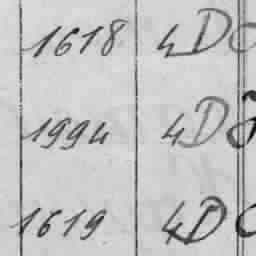 1618 4D
1994 4D
1619 4D